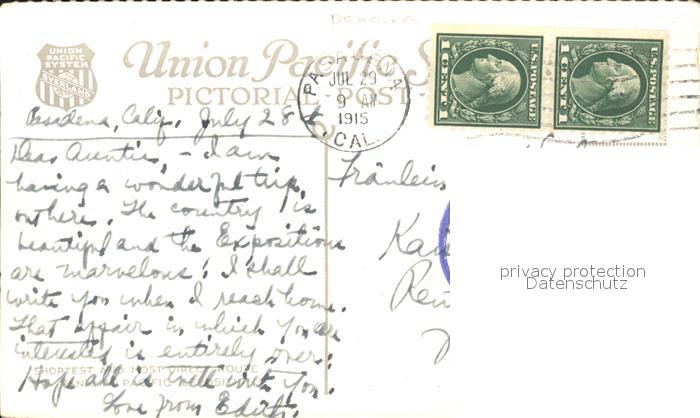 Panama
UNION
PACIFIC
SYSTEM
OVERLAND
Union Pacific S
PICTORIAL POST
PASADENA
JUL 29
9 AM
1915
CAL.
U.S. POSTAGE
1 CENT 1
U.S. POSTAGE
1 CENT 1
Pasadena, Calif. July 28th.
Dear Auntie, – I am
having a wonderful trip
out here. The country is
beautiful and the Expositions
are marvelous! I shall
write you when I reach home.
That affair in which you are
interested is entirely over!
Hope all is well with you.
Love from Edith.
SHORTEST AND MOST DIRECT ROUTE
PACIFIC EXPOSITION
Fräulein
privacy protection
Datenschutz